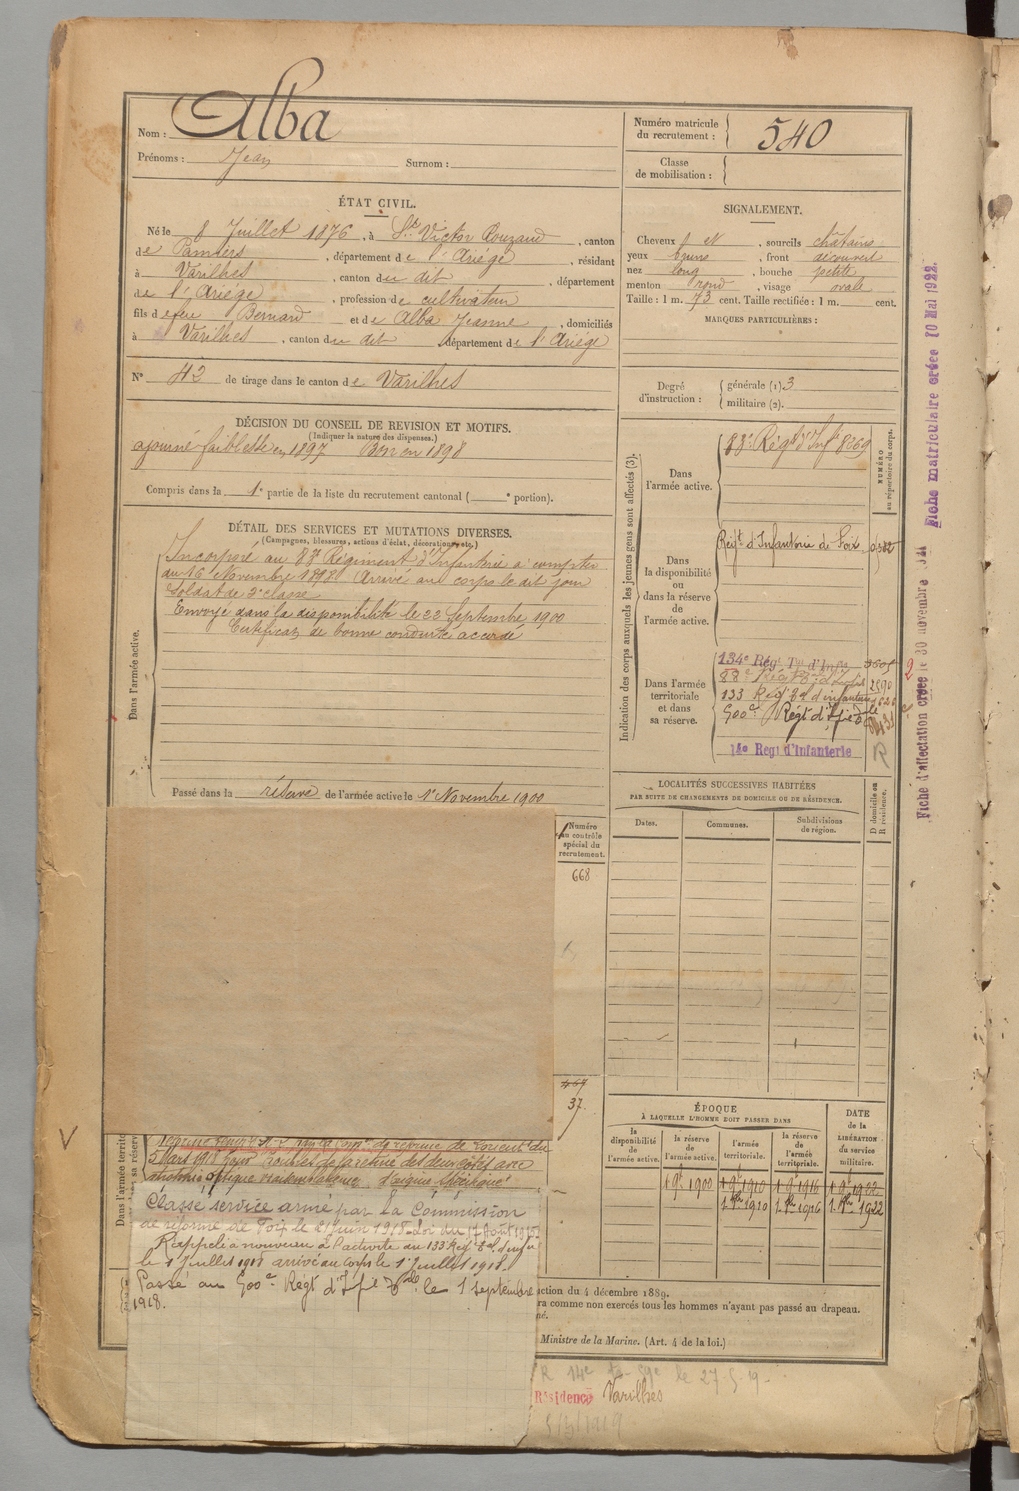 Nom : Alba
Prénoms : Jean Surnom :
Numéro matricule
du recrutement : 540
Classe
de mobilisation :
ÉTAT CIVIL.
Né le 8 Juillet 1876, à St Victor Rouzaud, canton
de Pamiers, département de l'Ariège, résidant
à Varilhes, canton du dit, département
de l'Ariège, profession de cultivateur
fils de feu Bernard et de Alba Jeanne, domiciliés
à Varilhes, canton du dit, département de l'Ariège
N° 42 de tirage dans le canton de Varilhes
SIGNALEMENT.
Cheveux et sourcils châtains
yeux bruns, front découvert
nez long, bouche petite
menton rond, visage ovale
Taille : 1 m. 73 cent. Taille rectifiée : 1 m. cent.
MARQUES PARTICULIÈRES :
Degré
d'instruction : générale (1) 3
militaire (2).
DÉCISION DU CONSEIL DE REVISION ET MOTIFS.
(Indiquer la nature des dispenses.)
ajourné faiblesse en 1897 Bon en 1898
Compris dans la 1e partie de la liste du recrutement cantonal ( e portion).
DÉTAIL DES SERVICES ET MUTATIONS DIVERSES.
(Campagnes, blessures, actions d'éclat, décorations, etc.)
Dans l'armée active.
Incorporé au 83e Régiment d'Infanterie à compter
du 16 Novembre 1898 Arrivé au corps le dit jour
Soldat de 2e classe
Envoyé dans la disponibilité le 22 Septembre 1900
Certificat de bonne conduite accordé
Passé dans la réserve de l'armée active le 1er Novembre 1900
Indication des corps auxquels les jeunes gens sont affectés (3).
NUMÉRO
au répertoire du corps.
Dans
l'armée active.
83e Régt d'Infie 8069
Dans
la disponibilité
ou
dans la réserve
de
l'armée active.
Régt d'Infanterie de Foix
Dans l'armée
territoriale
et dans
sa réserve.
134e Régt Tal d'Infie
88e Régt
133 Régt Tal d'infanterie
500e Régt d'Ifie Tale
14e Régt d'Infanterie
R
Fiche d'affectation créée le 30 novembre
Fiche matriculaire créée 10 Mai 1922.
LOCALITÉS SUCCESSIVES HABITÉES
PAR SUITE DE CHANGEMENTS DE DOMICILE OU DE RÉSIDENCE.
D domicile ou
R résidence.
Dates. Communes. Subdivisions
de région.
Numéro
au contrôle
spécial du
recrutement.
668
467
37.
ÉPOQUE
À LAQUELLE L'HOMME DOIT PASSER DANS
DATE
de la
LIBÉRATION
du service
militaire.
la
disponibilité
de
l'armée active.
la réserve
de
l'armée active.
l'armée
territoriale.
la réserve
de
l'armée
territoriale.
1 9bre 1900 1 9bre 1910 1 9bre 1916 1 9bre 1922
1. 8bre 1910 1. 8bre 1916 1. 8bre 1922
Dans l'armée territo
sa réserve
V
Réforme de Lorient du
5 Mars 1918 pour troubles de la rétine des deux côtés avec
optique vraisemblable
Classé service armé par la Commission
de réforme de Foix le 21 juin 1918 Loi du 17 Août 1915
Rappelé à nouveau à l'activité au 133 Rég Tal d'infie
le 1 Juillet 1918 arrivé au corps le 1 Juillet 1918.
Passé au 500e Régt d'Ifie Tale le 1 septembre
1918.
ction du 4 décembre 1889.
ra comme non exercés tous les hommes n'ayant pas passé au drapeau.
né.
Ministre de la Marine. (Art. 4 de la loi.)
R 14e 59e le 27 5 19
Résidence Varilhes
5/3/1919